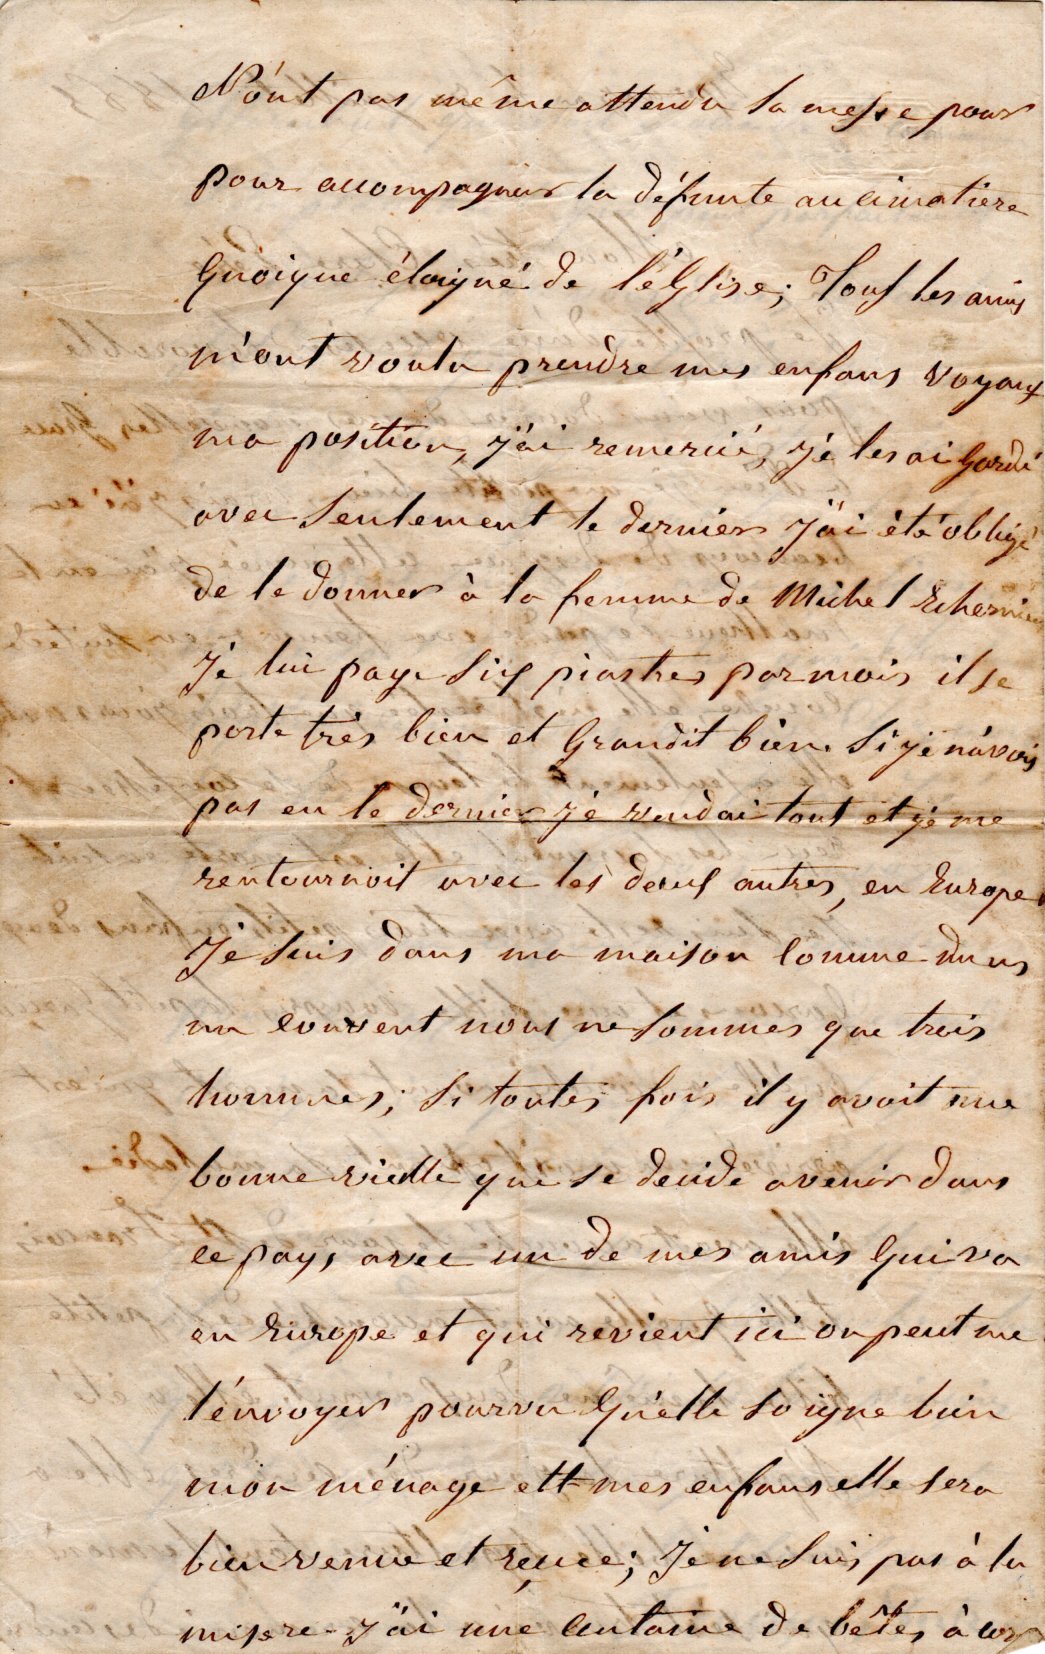 N'ont pas même attendu la messe pour
pour accompagner la défunte au cimatiere
Quoique éloigné de l'éGlise; Tous les amis
m'ont voulu prendre mes enfans voyant
ma position, j'ai remercié, je les ai Gardé
avec seulement le dernier j'ai été obligé
de le donner à la femme de Michel
Je lui paye Six piastres par mois il se
porte très bien et Grandit bien. Si je n'avois
pas eu le dernier je vendai tout et je me
rentournoit avec les deux autres, en Europe.
Je Suis dans ma maison Comme dans
un Couvent nous ne Sommes que trois
hommes; Si toutes fois il y avoit une
bonne vielle que se décide avenir dans
ce pays avec un de mes amis Qui va
en Europe et qui revient ici on peut me
l'énvoyer pourvu Qu'elle Soigne bien
mon ménage ett mes enfans elle Sera
bien venue et reçue; Je ne Suis pas à la
misere. J'ai une Centaine de bêtes à cor